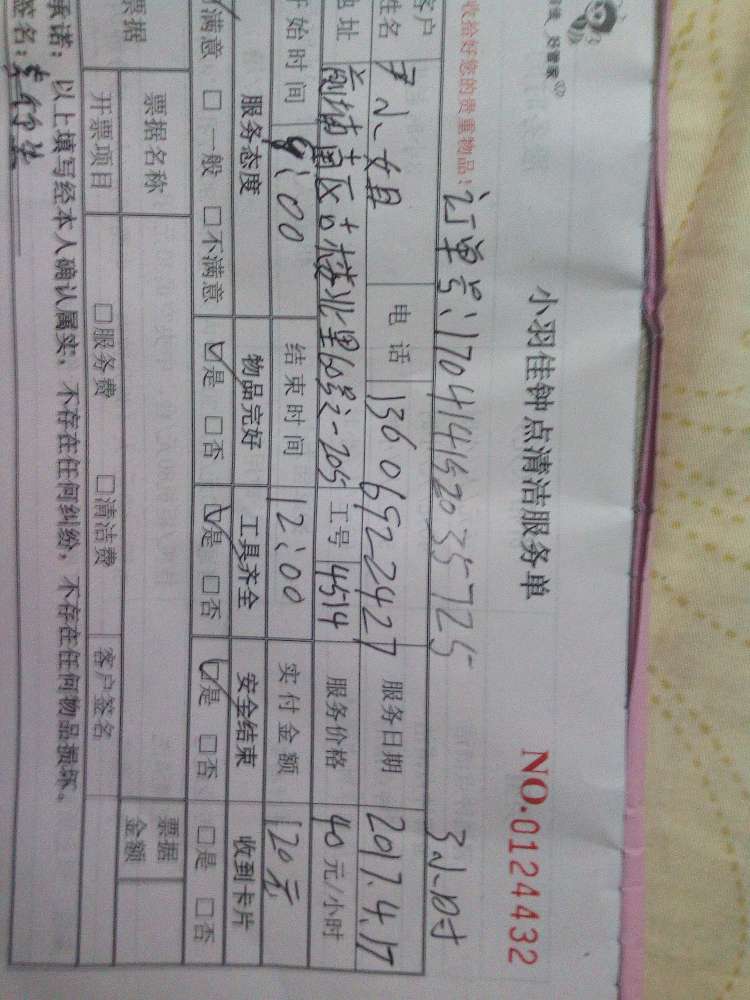 好管家
小羽佳钟点清洁服务单 NO.0124432
收拾好您的贵重物品! 订单号:170414152035725 3小时
客户姓名 小姐 电话 13606922427 服务日期 2017.4.17
地址 古楼北里60号之-205 工号 4514 服务价格 40元/小时
开始时间 9:00 结束时间 12:00 实付金额 120元
服务态度 物品完好 工具齐全 安全结束 收到卡片
满意 □一般 □不满意 ☑是 □否 ☑是 □否 ☑是 □否 □是 □否
票据 票据名称 票据金额
开票项目 □服务费 □清洁费 客户签名
承诺:以上填写经本人确认属实,不存在任何纠纷,不存在任何物品损坏。
签名: